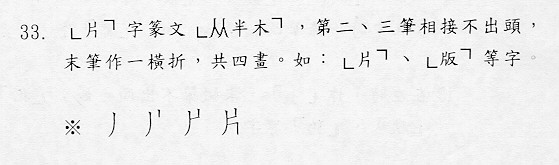 33. ﹂片﹁字篆文﹂从半木﹁，第二、三筆相接不出頭，
末筆作一橫折，共四畫。如：﹂片﹁、﹂版﹁等字。
※ 丿 丿丨